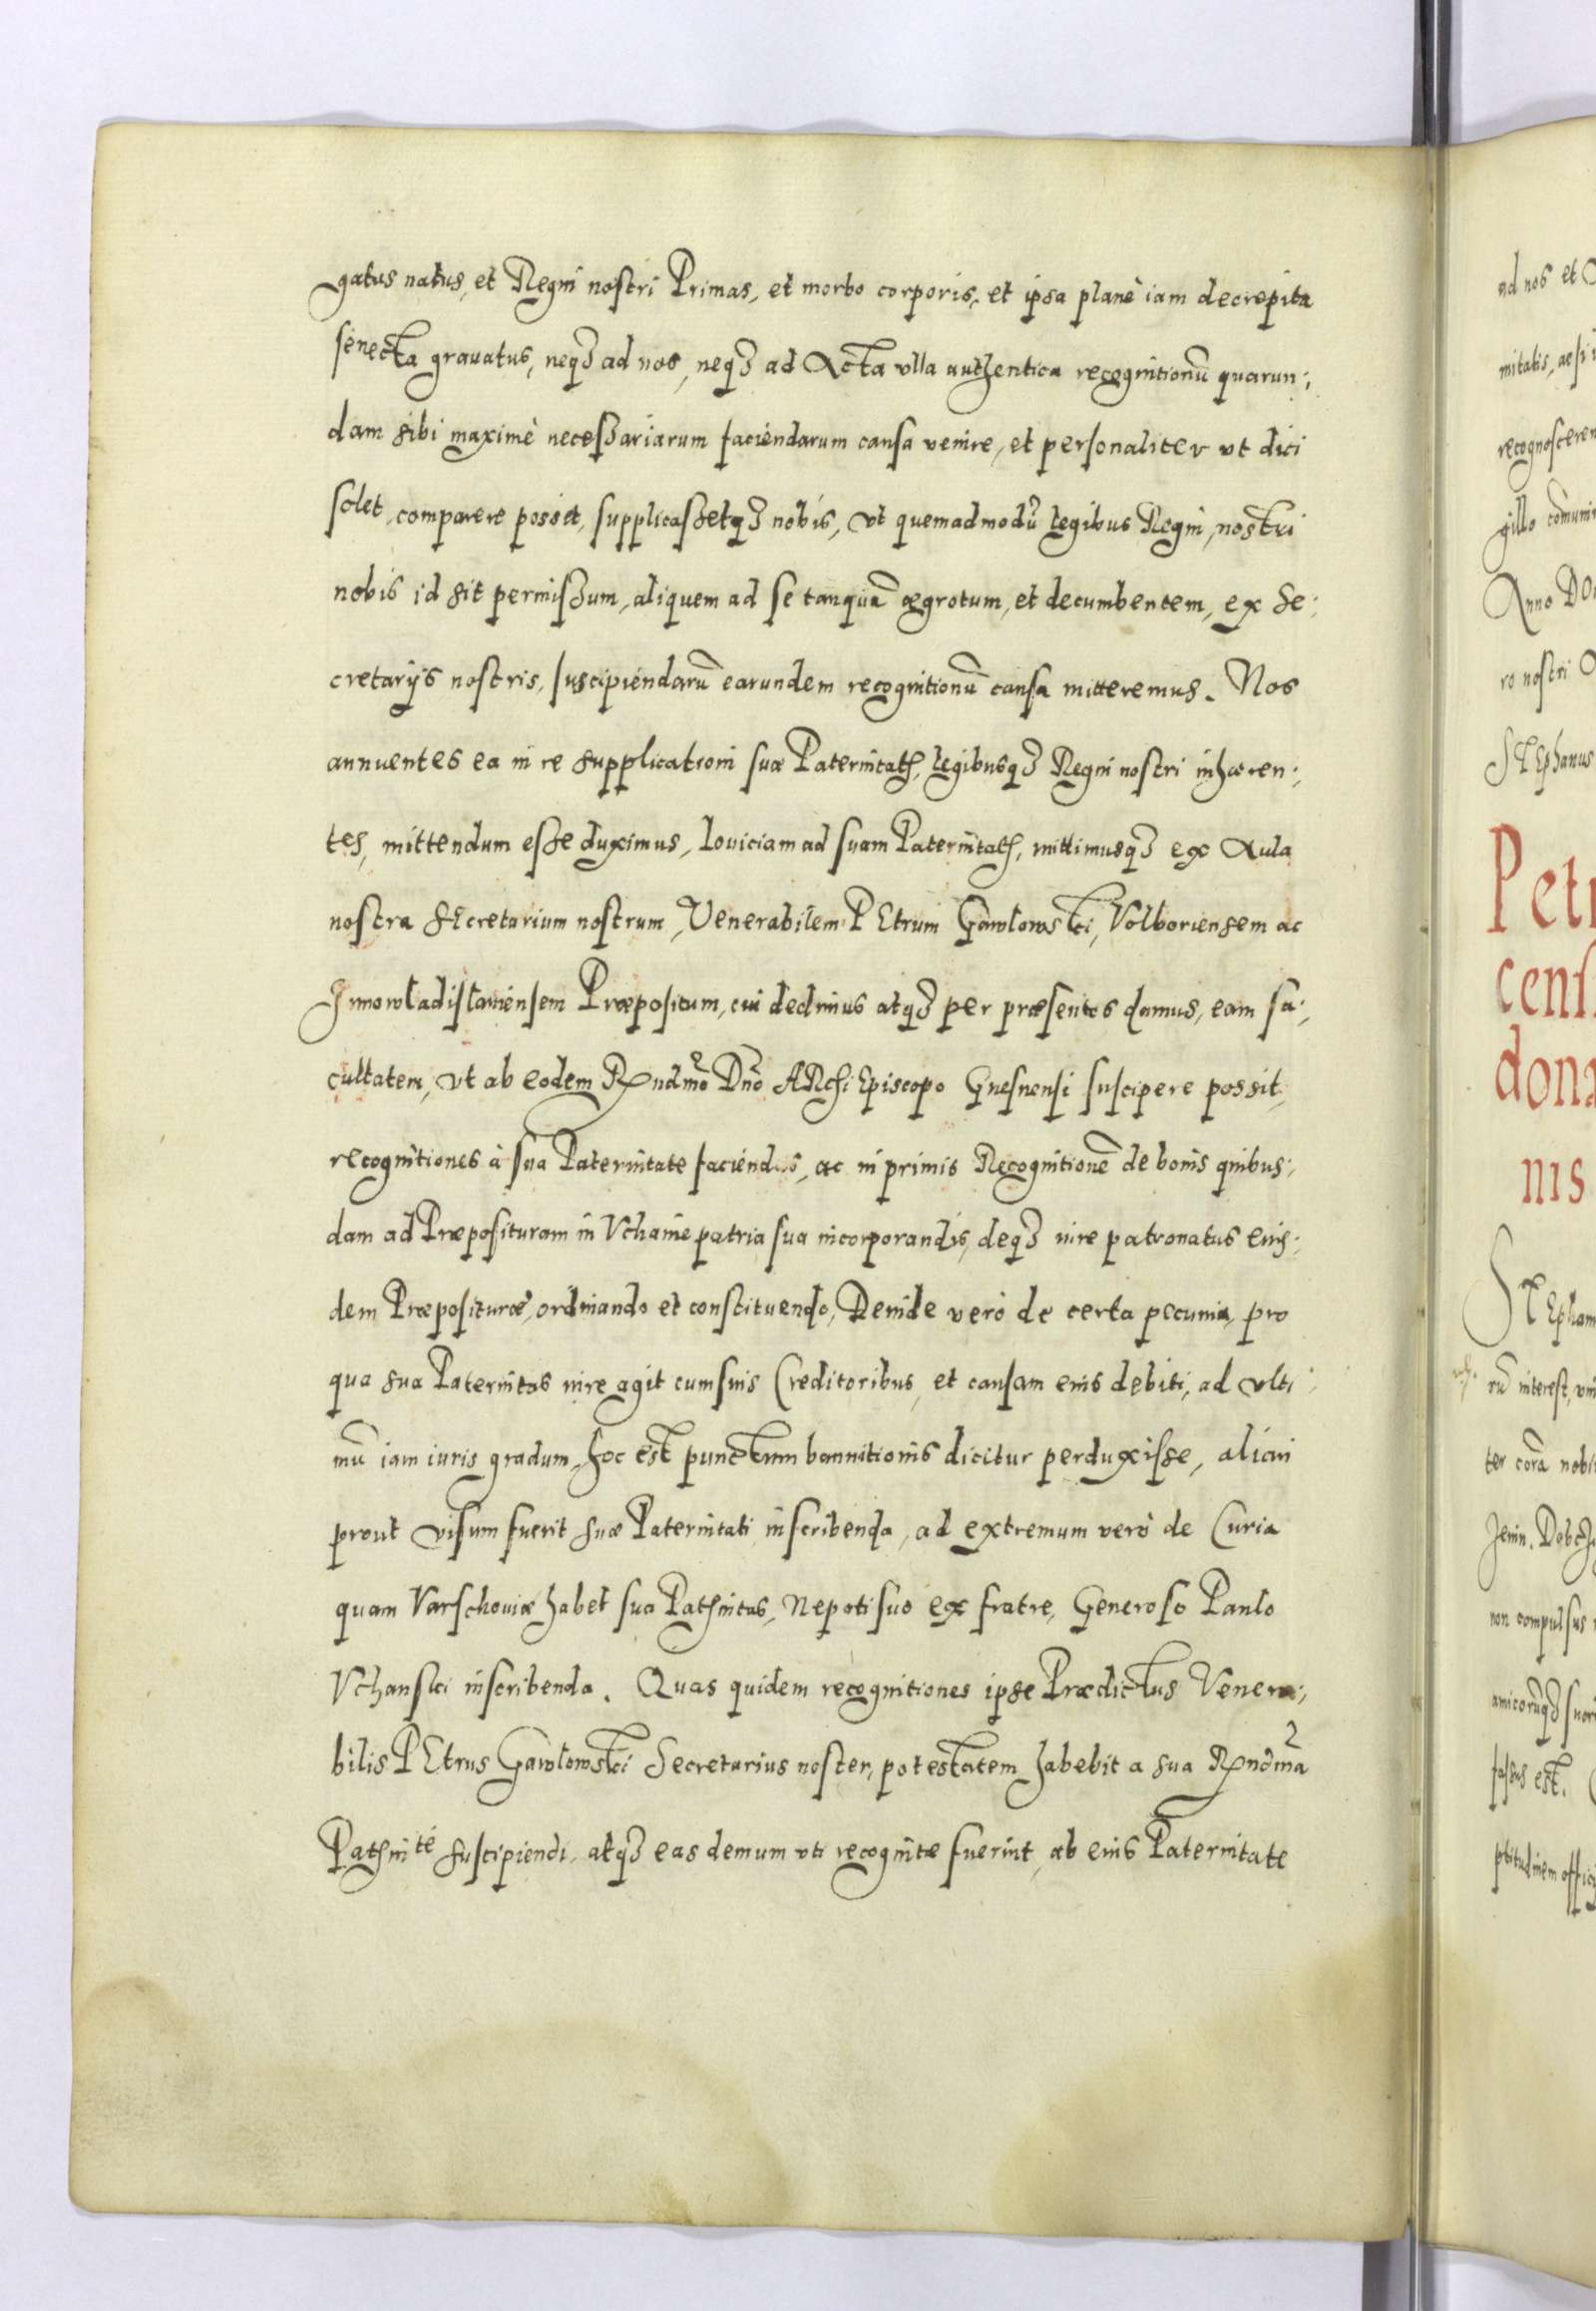 gatus natus, et Regni nostri Primas, et morbo corporis, et ipsa planè iam decrepita
senecta grauatus, neq3 ad nos, neq3 ad Acta vlla authentica recognitionũ quarun:
dam sibi maximè necessariarum faciendarum causa venire, et personaliter vt dici
solet, comparere posset, supplicassetq3 nobis, vt quemadmodũ legibus Regni nostri
nobis id sit permissum, aliquem ad se tanquã ægrotum, et decumbentem, ex Se:
cretarijs nostris, suscipiendarũ earundem recognitionũ causa mitteremus. Nos
annuentes ea in re supplicationi suæ Paternitatis, legibusq3 Regni nostri inhæren:
tes, mittendum esse duximus, Louiciam ad suam Paternitatem, mittimusq3 ex Aula
nostra SEcretarium nostrum, Venerabilem PEtrum Gawlowski, Volboriensem ac
Jnnowladislauiensem Præpositum, cui dedimus atq3 per præsentes damus, eam fa:
cultatem, vt ab eodem Rndmo Dno ARchi Episcopo Gnesnensi suscipere possit,
recognitiones à sua Paternitate faciendas, ac in primis Recognitionẽ de bonis quibus:
dam ad Præposituram in Vchanie patria sua incorporandis, deq3 iure patronatus eius:
dem Præposituræ, ordinando et constituendo, Deinde verò de certa pecunia, pro
qua sua Paternitas iure agit cum suis Creditoribus, et causam eius debiti, ad vlti:
mũ iam iuris gradum, hoc est punctum bannitionis dicitur perduxisse, alicui
prout visum fuerit suæ Paternitati inscribenda, ad extremum verò de Curia
quam Varschouiæ habet sua Paternitas, Nepoti suo ex fratre, Generoso Paulo
Vchanski inscribenda. Quas quidem recognitiones ipse Prædictus Venera:
bilis PEtrus Gawlowski Secretarius noster, potestatem habebit a sua Rndma
Paternite suscipiendi, atq3 eas demum vti recognitæ fuerint, ab eius Paternitate
ad nos et
mitatis, ac si
recognosceren
gillo cõmuni
Anno DO
ro nostri
STEphanus
Petr
cens
dona
nis
STEphan
rũ interest, vni
ter corã nobi
non compulsus
amicorũq3 suor
fassus est.
ptitudinem offici